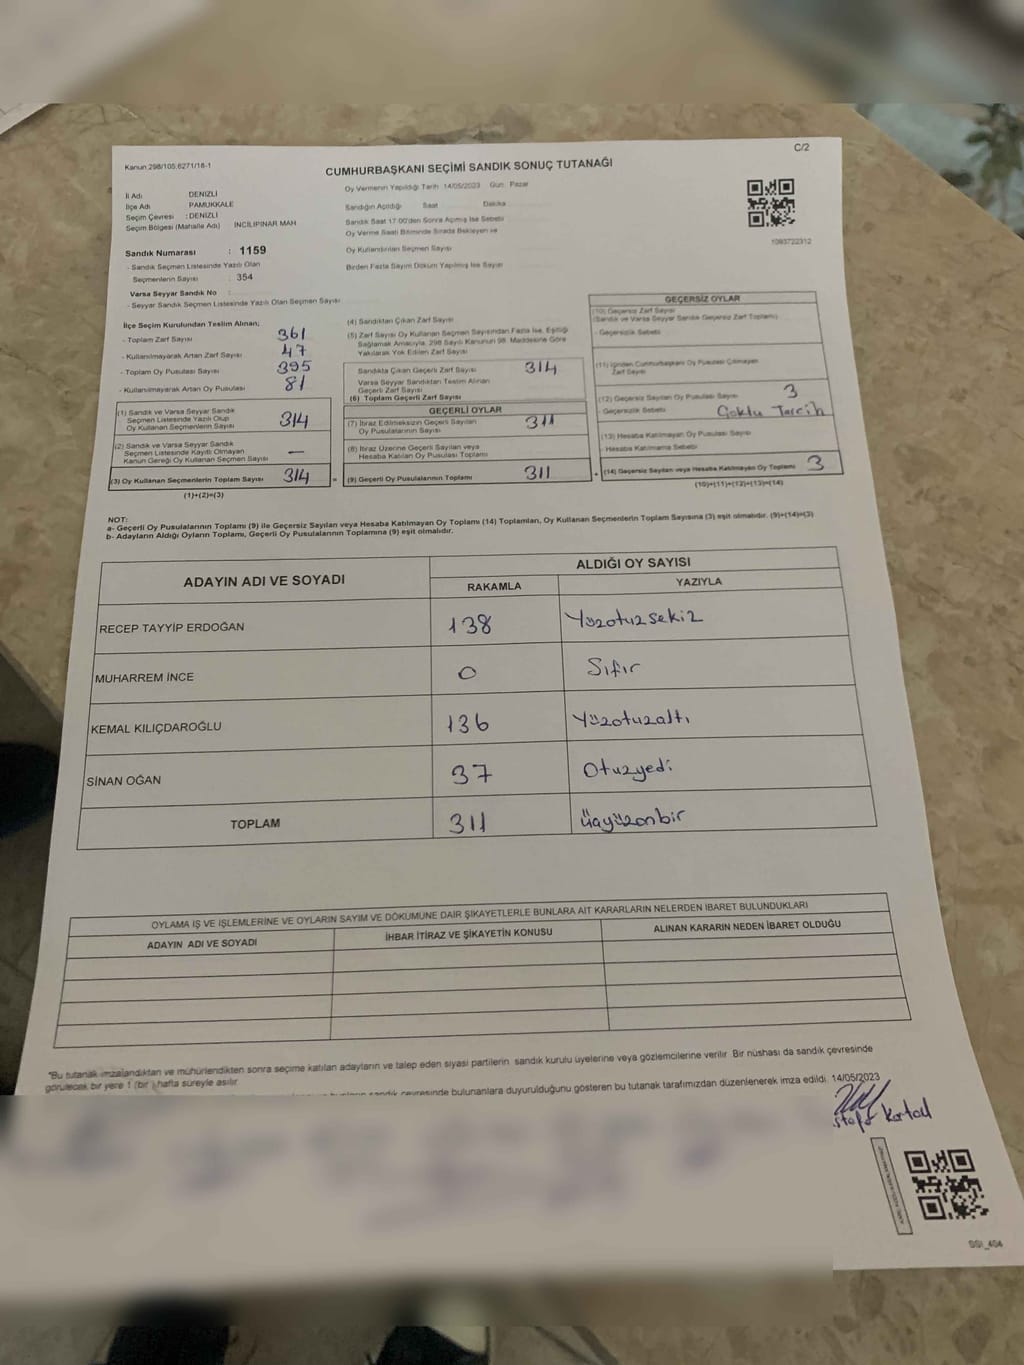 Kanun:298/105,6271/18-1
C/2
CUMHURBAŞKANI SEÇİMİ SANDIK SONUÇ TUTANAĞI
İl Adı DENİZLİ
İlçe Adı PAMUKKALE
Seçim Çevresi : DENİZLİ
Seçim Bölgesi (Mahalle Adı) İNCİLİPINAR MAH
Sandık Numarası : 1159
- Sandık Seçmen Listesinde Yazılı Olan
Seçmenlerin Sayısı : 354
Varsa Seyyar Sandık No :
- Seyyar Sandık Seçmen Listesinde Yazılı Olan Seçmen Sayısı
Oy Vermenin Yapıldığı Tarih 14/05/2023 Gün: Pazar
Sandığın Açıldığı Saat Dakika
Sandık Saat 17:00'den Sonra Açılmış İse Sebebi
Oy Verme Saati Bitiminde Sırada Bekleyen ve
Oy Kullandırılan Seçmen Sayısı
Birden Fazla Sayım Döküm Yapılmış İse Sayısı
1093722312
İlçe Seçim Kurulundan Teslim Alınan;
- Toplam Zarf Sayısı 361
- Kullanılmayarak Artan Zarf Sayısı 47
- Toplam Oy Pusulası Sayısı 395
- Kullanılmayarak Artan Oy Pusulası 81
(1) Sandık ve Varsa Seyyar Sandık
Seçmen Listesinde Yazılı Olup
Oy Kullanan Seçmenlerin Sayısı 314
(2) Sandık ve Varsa Seyyar Sandık
Seçmen Listesinde Kayıtlı Olmayan
Kanun Gereği Oy Kullanan Seçmen Sayısı —
(3) Oy Kullanan Seçmenlerin Toplam Sayısı 314
(1)+(2)=(3)
(4) Sandıktan Çıkan Zarf Sayısı
(5) Zarf Sayısı Oy Kullanan Seçmen Sayısından Fazla İse, Eşitliği
Sağlamak Amacıyla, 298 Sayılı Kanunun 98. Maddesine Göre
Yakılarak Yok Edilen Zarf Sayısı
Sandıkta Çıkan Geçerli Zarf Sayısı 314
Varsa Seyyar Sandıktan Teslim Alınan
Geçerli Zarf Sayısı
(6) Toplam Geçerli Zarf Sayısı
GEÇERLİ OYLAR
(7) İtiraz Edilmeksizin Geçerli Sayılan
Oy Pusulalarının Sayısı 311
(8) İtiraz Üzerine Geçerli Sayılan veya
Hesaba Katılan Oy Pusulası Toplamı
= (9) Geçerli Oy Pusulalarının Toplamı 311
GEÇERSİZ OYLAR
(10) Geçersiz Zarf Sayısı
(Sandık ve Varsa Seyyar Sandık Geçersiz Zarf Toplamı)
- Geçersizlik Sebebi
(11) İçinden Cumhurbaşkanı Oy Pusulası Çıkmayan
Zarf Sayısı
(12) Geçersiz Sayılan Oy Pusulası Sayısı 3
- Geçersizlik Sebebi Çoklu Tercih
(13) Hesaba Katılmayan Oy Pusulası Sayısı
- Hesaba Katılmama Sebebi
+ (14) Geçersiz Sayılan veya Hesaba Katılmayan Oy Toplamı 3
(10)+(11)+(12)+(13)=(14)
NOT:
a- Geçerli Oy Pusulalarının Toplamı (9) ile Geçersiz Sayılan veya Hesaba Katılmayan Oy Toplamı (14) Toplamları, Oy Kullanan Seçmenlerin Toplam Sayısına (3) eşit olmalıdır. (9)+(14)=(3)
b- Adayların Aldığı Oyların Toplamı, Geçerli Oy Pusulalarının Toplamına (9) eşit olmalıdır.
ADAYIN ADI VE SOYADI
ALDIĞI OY SAYISI
RAKAMLA YAZIYLA
RECEP TAYYİP ERDOĞAN 138 Yüzotuzsekiz
MUHARREM İNCE 0 Sıfır
KEMAL KILIÇDAROĞLU 136 Yüzotuzaltı
SİNAN OĞAN 37 Otuzyedi
TOPLAM 311 Üçyüzonbir
OYLAMA İŞ VE İŞLEMLERİNE VE OYLARIN SAYIM VE DÖKÜMÜNE DAİR ŞİKAYETLERLE BUNLARA AİT KARARLARIN NELERDEN İBARET BULUNDUKLARI
ADAYIN ADI VE SOYADI İHBAR İTİRAZ VE ŞİKAYETİN KONUSU ALINAN KARARIN NEDEN İBARET OLDUĞU
"Bu tutanak imzalandıktan ve mühürlendikten sonra seçime katılan adayların ve talep eden siyasi partilerin sandık kurulu üyelerine veya gözlemcilerine verilir. Bir nüshası da sandık çevresinde
görülecek bir yere 1 (bir) hafta süreyle asılır.
sandık çevresinde bulunanlara duyurulduğunu gösteren bu tutanak tarafımızdan düzenlenerek imza edildi. 14/05/2023